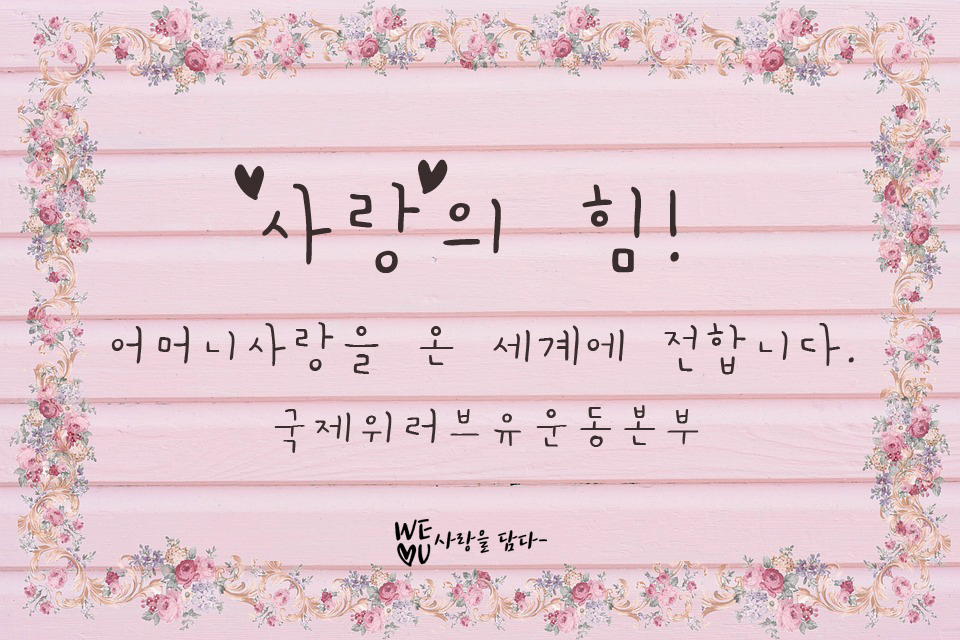 사랑의 힘!
어머니사랑을 온 세계에 전합니다.
국제위러브유운동본부
WE♥U 사랑을 담다-